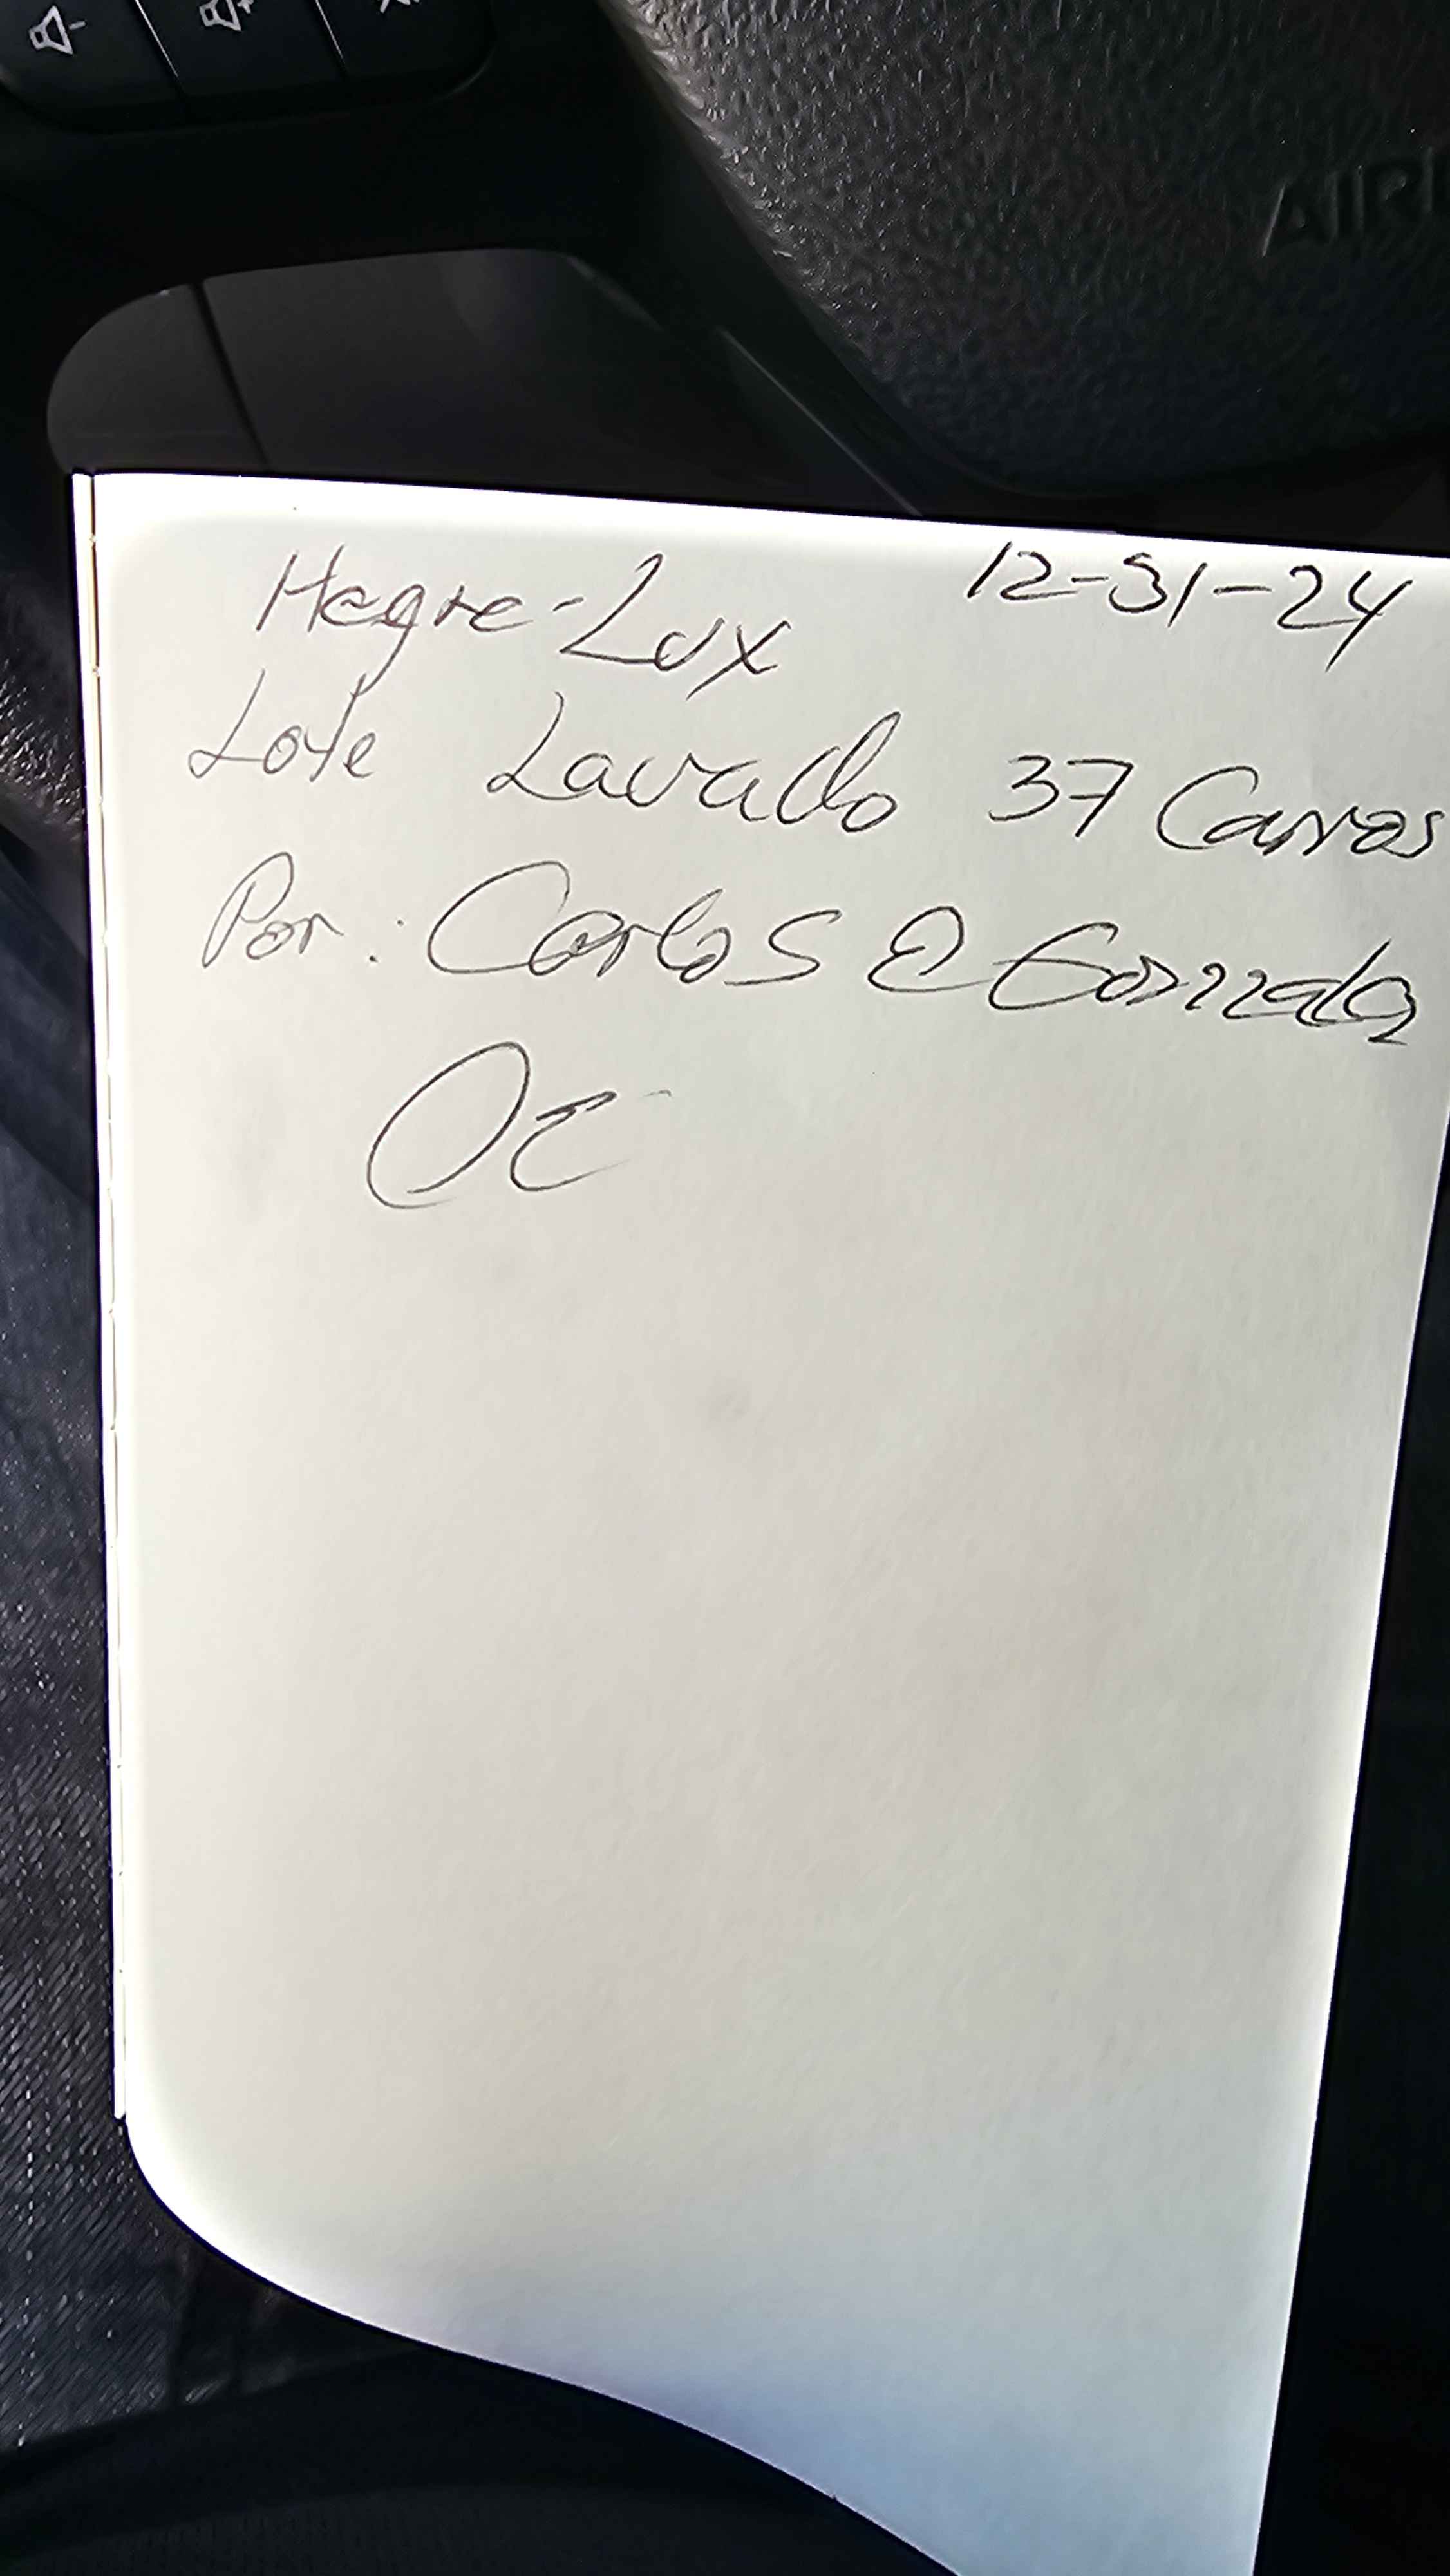 AIR
Hegre-Lux 12-31-24
Lote Lavado 37 Carros
Por: Carlos E Gonzalez